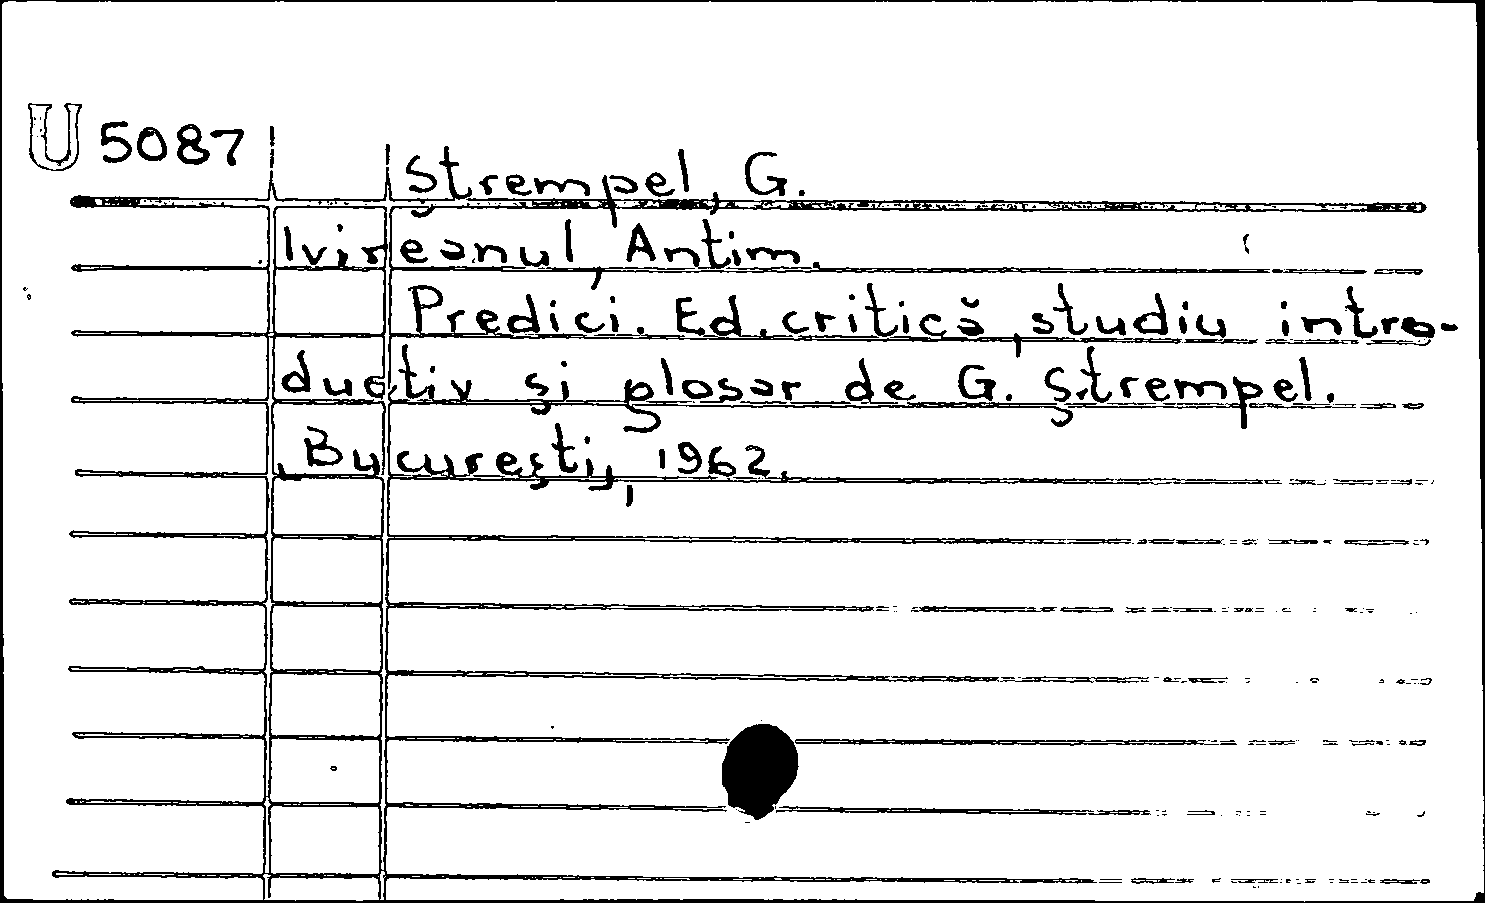 U 5087
Ştrempel, G.
Ivireanul, Antim.
Predici. Ed. critică, studiu intro-
ductiv şi glosar de G. Ştrempel.
Bucureşti, 1962.